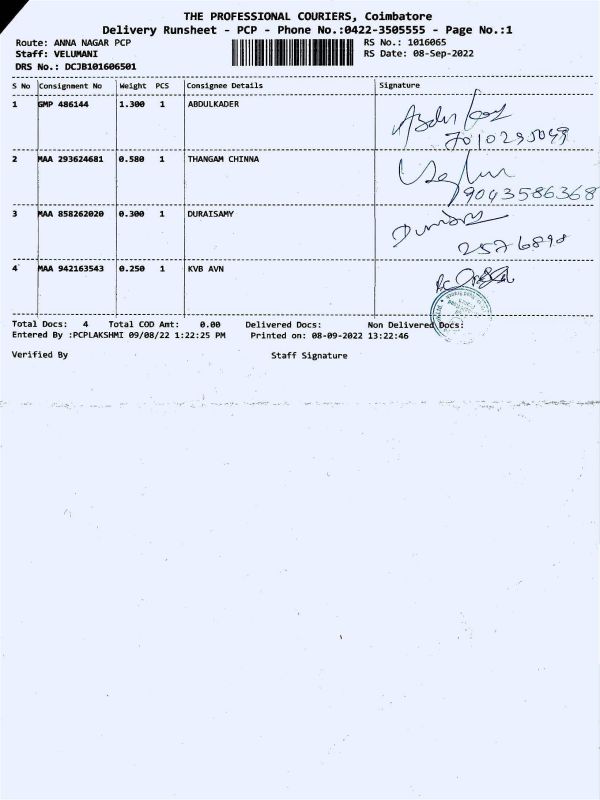 THE PROFESSIONAL COURIERS, Coimbatore
Delivery Runsheet - PCP - Phone No.:0422-3505555 - Page No.:1
Route: ANNA NAGAR PCP RS No.: 1016065
Staff: VELUMANI RS Date: 08-Sep-2022
DRS No.: DCJB101606501
S No Consignment No Weight PCS Consignee Details Signature
1 GMP 486144 1.300 1 ABDULKADER
7010295049
2 MAA 293624681 0.580 1 THANGAM CHINNA
9043586368
3 MAA 858262020 0.300 1 DURAISAMY
2576898
4 MAA 942163543 0.250 1 KVB AVN
Total Docs: 4 Total COD Amt: 0.00 Delivered Docs: Non Delivered Docs:
Entered By :PCPLAKSHMI 09/08/22 1:22:25 PM Printed on: 08-09-2022 13:22:46
Verified By Staff Signature